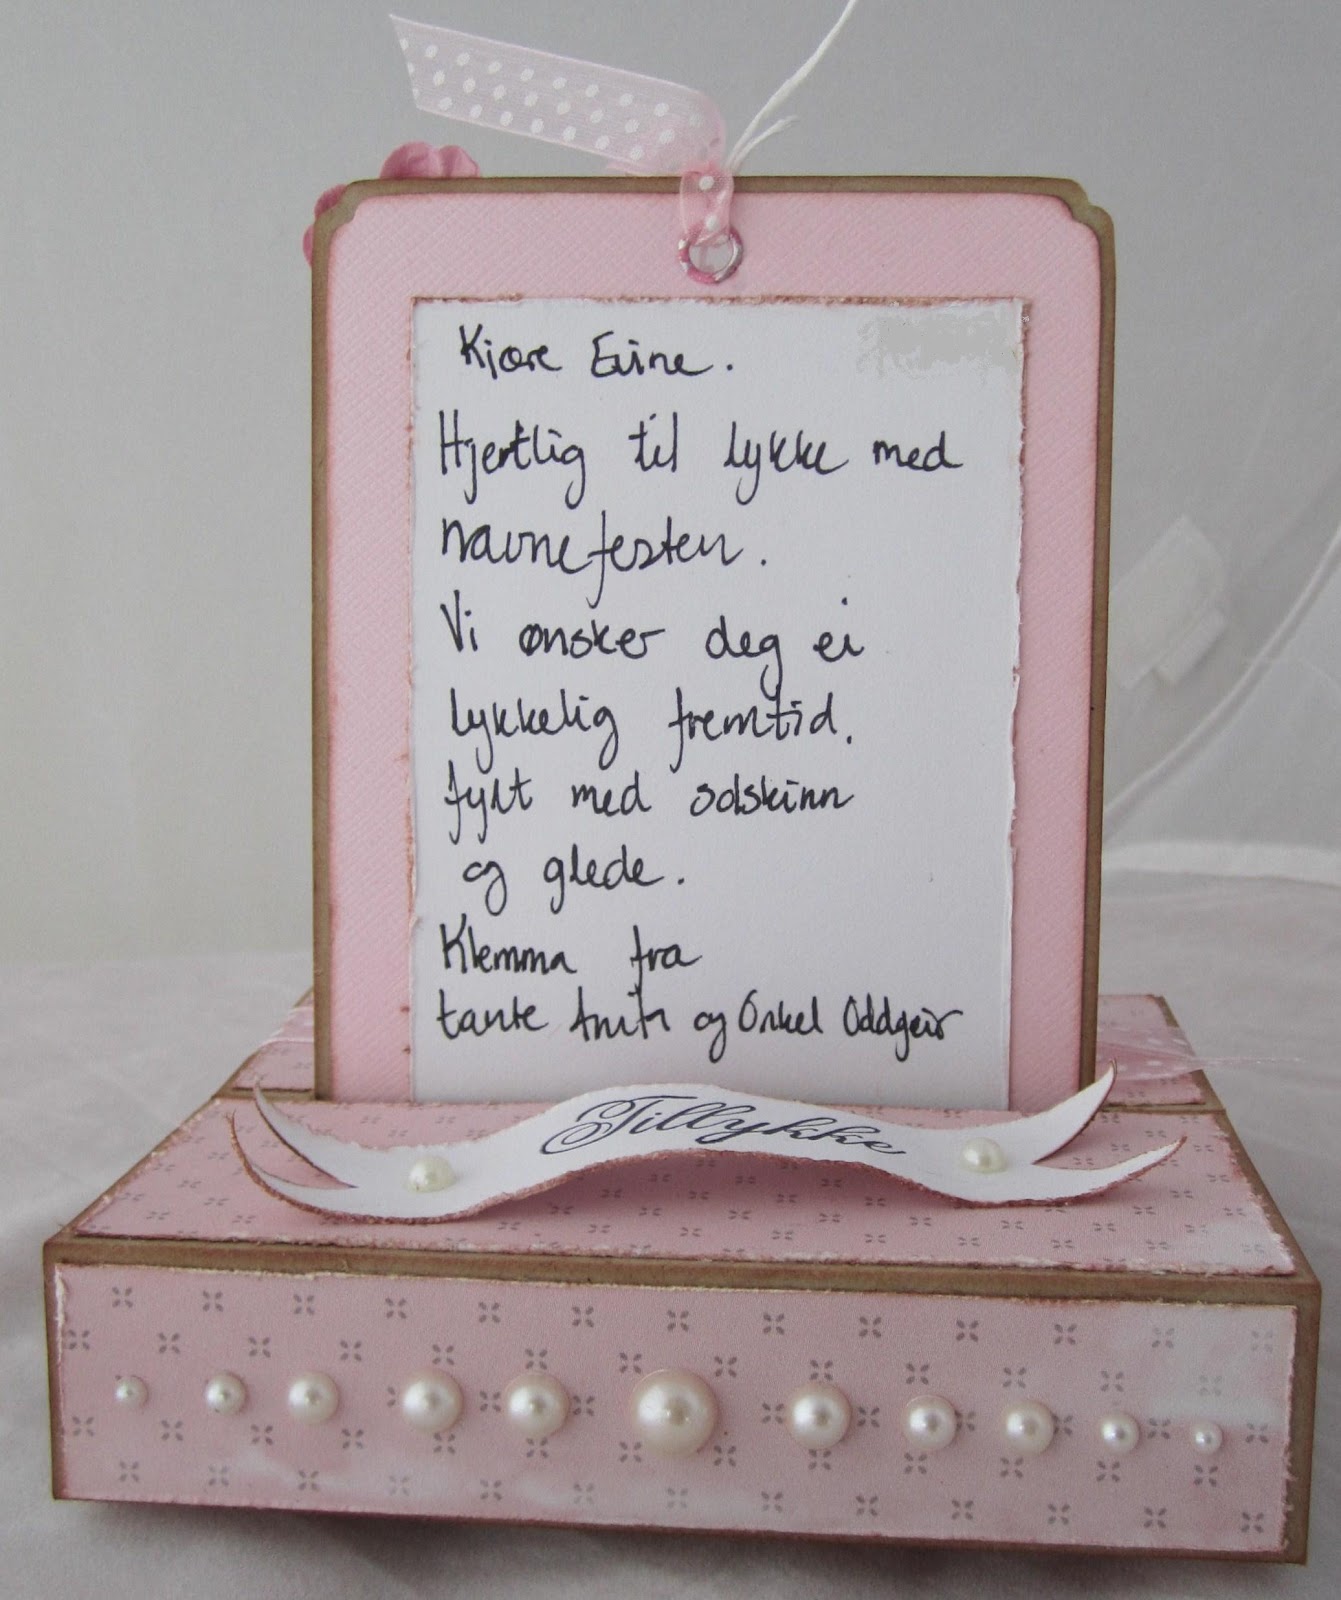 Kjære Evine.
Hjertlig til lykke med
navnefesten.
Vi ønsker deg ei
lykkelig fremtid.
fylt med solskinn
og glede.
Klemma fra
tante Anita og Onkel Oddgeir
Tillykke